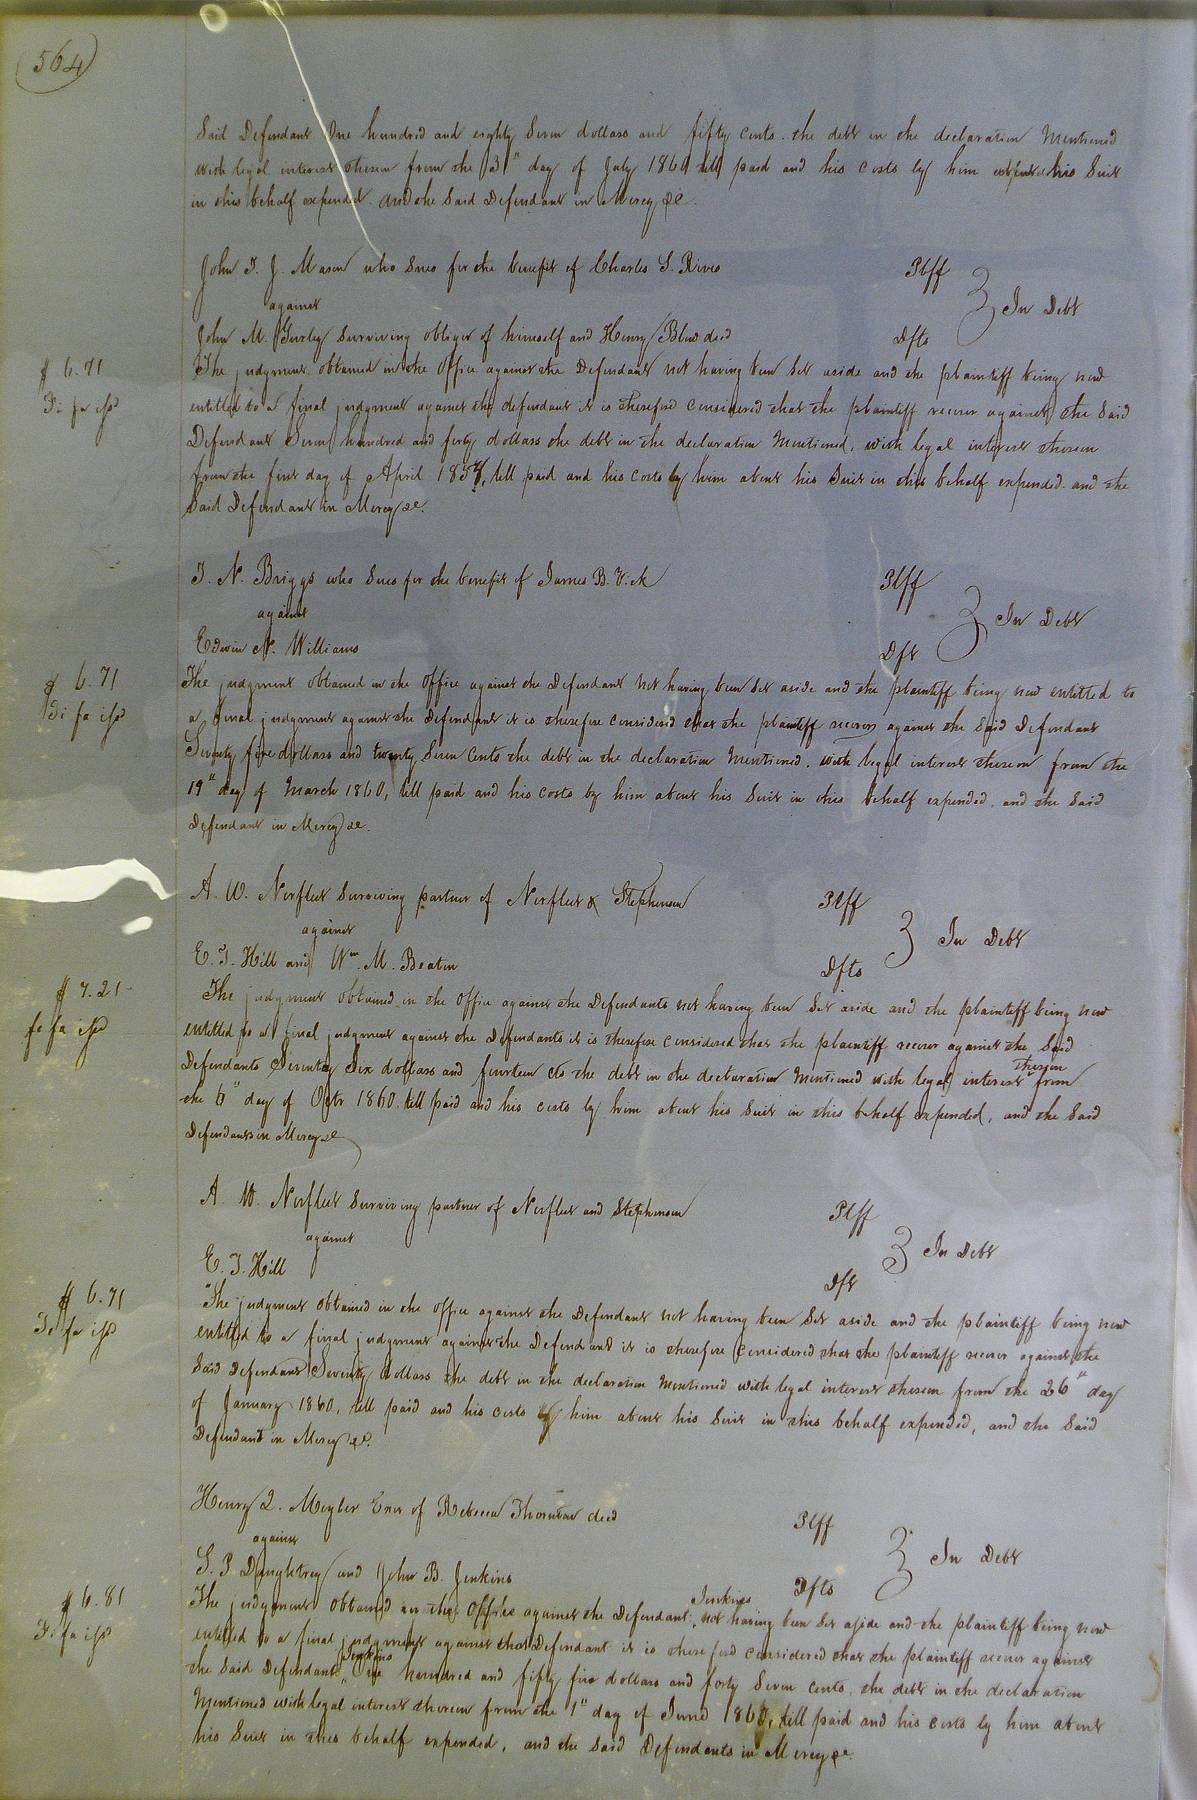 564
Said Defendant One hundred and eighty Seven dollars and fifty cents. the debt in the declaration Mentioned
with legal interest thereon from the 31" day of July 1860 till paid and his costs by him about his Suit
in this behalf expended. and the Said Defendant in Mercy &c.
John T. J. Mason who Sues for the benefit of Charles S. Rives Plff
against In Debt
John M. Gurley Surviving obligor of himself and Henry Blow decd Dfts
$6.71 The judgment obtained in the Office against the Defendant not having been Set aside and the plaintiff being now
Fi fa issd entitled to a final judgment against the defendant it is therefore considered that the plaintiff recover against the Said
Defendant Seven hundred and forty dollars the debt in the declaration Mentioned, with legal interest thereon
from the first day of April 1858, till paid and his costs by him about his Suit in this behalf expended. and the
Said Defendant in Mercy &c.
T. N. Briggs who Sues for the benefit of James B. Vick Plff
against In Debt
Edwin N. Williams Dft
$6.71 The judgment obtained in the Office against the Defendant not having been Set aside and the plaintiff being now entitled to
Fi fa issd a final judgment against the Defendant it is therefore considered that the plaintiff recover against the Said Defendant
Seventy five dollars and twenty Seven cents the debt in the declaration Mentioned, with legal interest thereon from the
19" day of March 1860, till paid and his costs by him about his Suit in this behalf expended. and the Said
Defendant in Mercy &c.
A. W. Norfleet Surviving partner of Norfleet & Stephenson Plff
against In Debt
E. T. Hill and Wm. M. Beaton Dfts
$7.21 The judgment obtained in the Office against the Defendants not having been Set aside and the plaintiff being now
fi fa issd entitled to a final judgment against the Defendants it is therefore considered that the plaintiff recover against the Said
Defendants Seventy Six dollars and fourteen cts the debt in the declaration Mentioned with legal interest thereon from
the 6" day of Octr 1860. till paid and his costs by him about his Suit in this behalf expended, and the Said
Defendants in Mercy &c
A. W. Norfleet Surviving partner of Norfleet and Stephenson Plff
against In Debt
E. T. Hill Dft
$6.71 The judgment obtained in the office against the Defendant not having been Set aside and the plaintiff being now
Fi fa issd entitled to a final judgment against the Defendant it is therefore considered that the plaintiff recover against the
Said Defendant Seventy dollars the debt in the declaration Mentioned with legal interest thereon from the 26" day
of January 1860, till paid and his costs by him about his Suit in this behalf expended, and the Said
Defendant in Mercy &c.
Henry Exor of Rebecca Thornton decd Plff
against In Debt
S. P. Daughtrey and John B. Jenkins Dfts
$6.81 The judgment obtained in the Office against the Defendant Jenkins not having been Set aside and the plaintiff being now
Fi fa issd entitled to a final judgment against that Defendant it is therefore considered that the plaintiff recover against
the Said Defendant Jenkins One hundred and fifty five dollars and forty Seven cents. the debt in the declaration
Mentioned with legal interest thereon from the 1" day of June 1860, till paid and his costs by him about
his Suit in this behalf expended, and the Said Defendants in Mercy &c.